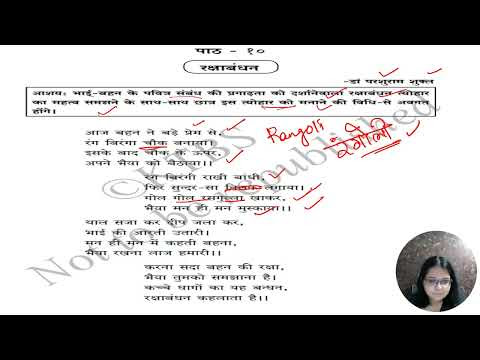 पाठ - १०
रक्षाबंधन
-डॉ परशुराम शुक्ल
आशय: भाई-बहन के पवित्र संबंध की प्रगाढ़ता को दर्शानेवाला रक्षाबंधन त्योहार
का महत्व समझने के साथ-साथ छात्र इस त्योहार को मनाने की विधि-से अवगत
होंगे।
आज बहन ने बड़े प्रेम से,
रंग बिरंगा चौक बनाया।
इसके बाद चौक के ऊपर,
अपने भैया को बैठाया।।
Rangoli
रंगोली
रंग बिरंगी राखी बांधी,
फिर सुन्दर-सा तिलक लगाया।
गोल गोल रसगुल्ला खाकर,
भैया मन ही मन मुस्काया।।
थाल सजा कर दीप जला कर,
भाई की आरती उतारी।
मन ही मन में कहती बहना,
भैया रखना लाज हमारी।।
करना सदा बहन की रक्षा,
भैया तुमको समझाना है।
कच्चे धागों का यह बन्धन,
रक्षाबंधन कहलाता है।।
©KTBS
Not to be republished